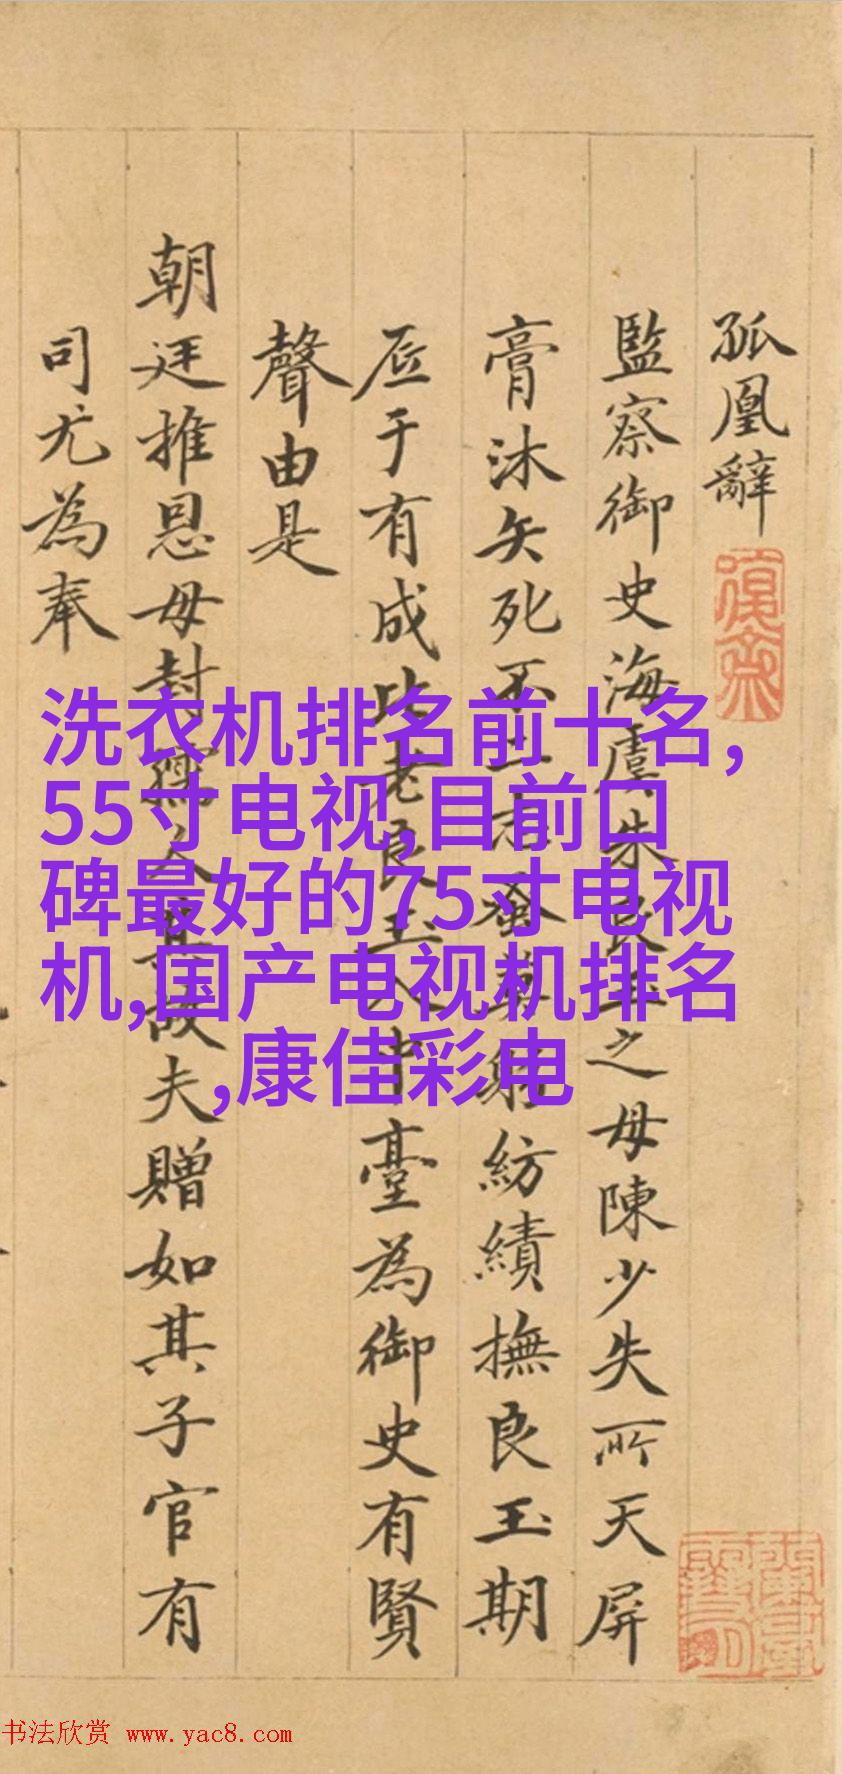 孤凰辭
監察御史海虞朱良玉之母陳少失所天屏
膏沐矢死不二志蚤尊躬紡績撫良玉期
底于有成比老良玉入中臺為御史有賢
聲由是
朝廷推恩母封孺人其故夫贈如其子官有
司尤為奉
洗衣机排名前十名,
55寸电视,目前口
碑最好的75寸电视
机,国产电视机排名
,康佳彩电
书法欣赏 www.yac8.com